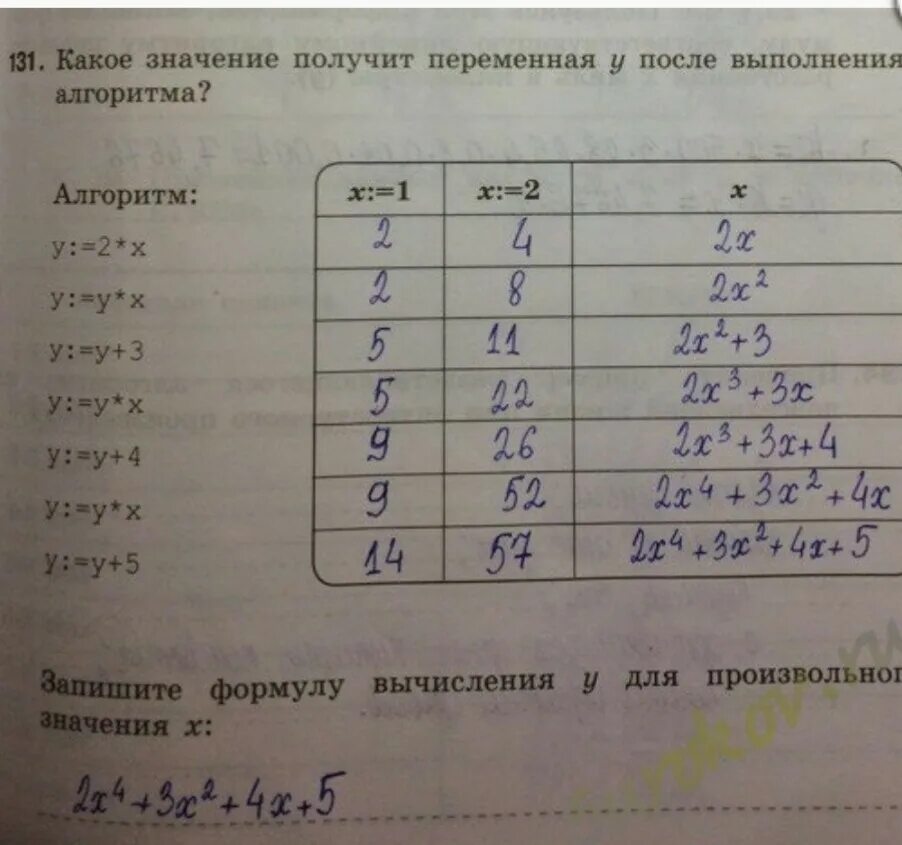 131. Какое значение получит переменная y после выполнения
алгоритма?
Алгоритм: x:=1 x:=2 x
y:=2*x 2 4 2x
y:=y*x 2 8 2x²
y:=y+3 5 11 2x²+3
y:=y*x 5 22 2x³+3x
y:=y+4 9 26 2x³+3x+4
y:=y*x 9 52 2x⁴+3x²+4x
y:=y+5 14 57 2x⁴+3x²+4x+5
Запишите формулу вычисления y для произвольног
значения x:
2x⁴+3x²+4x+5